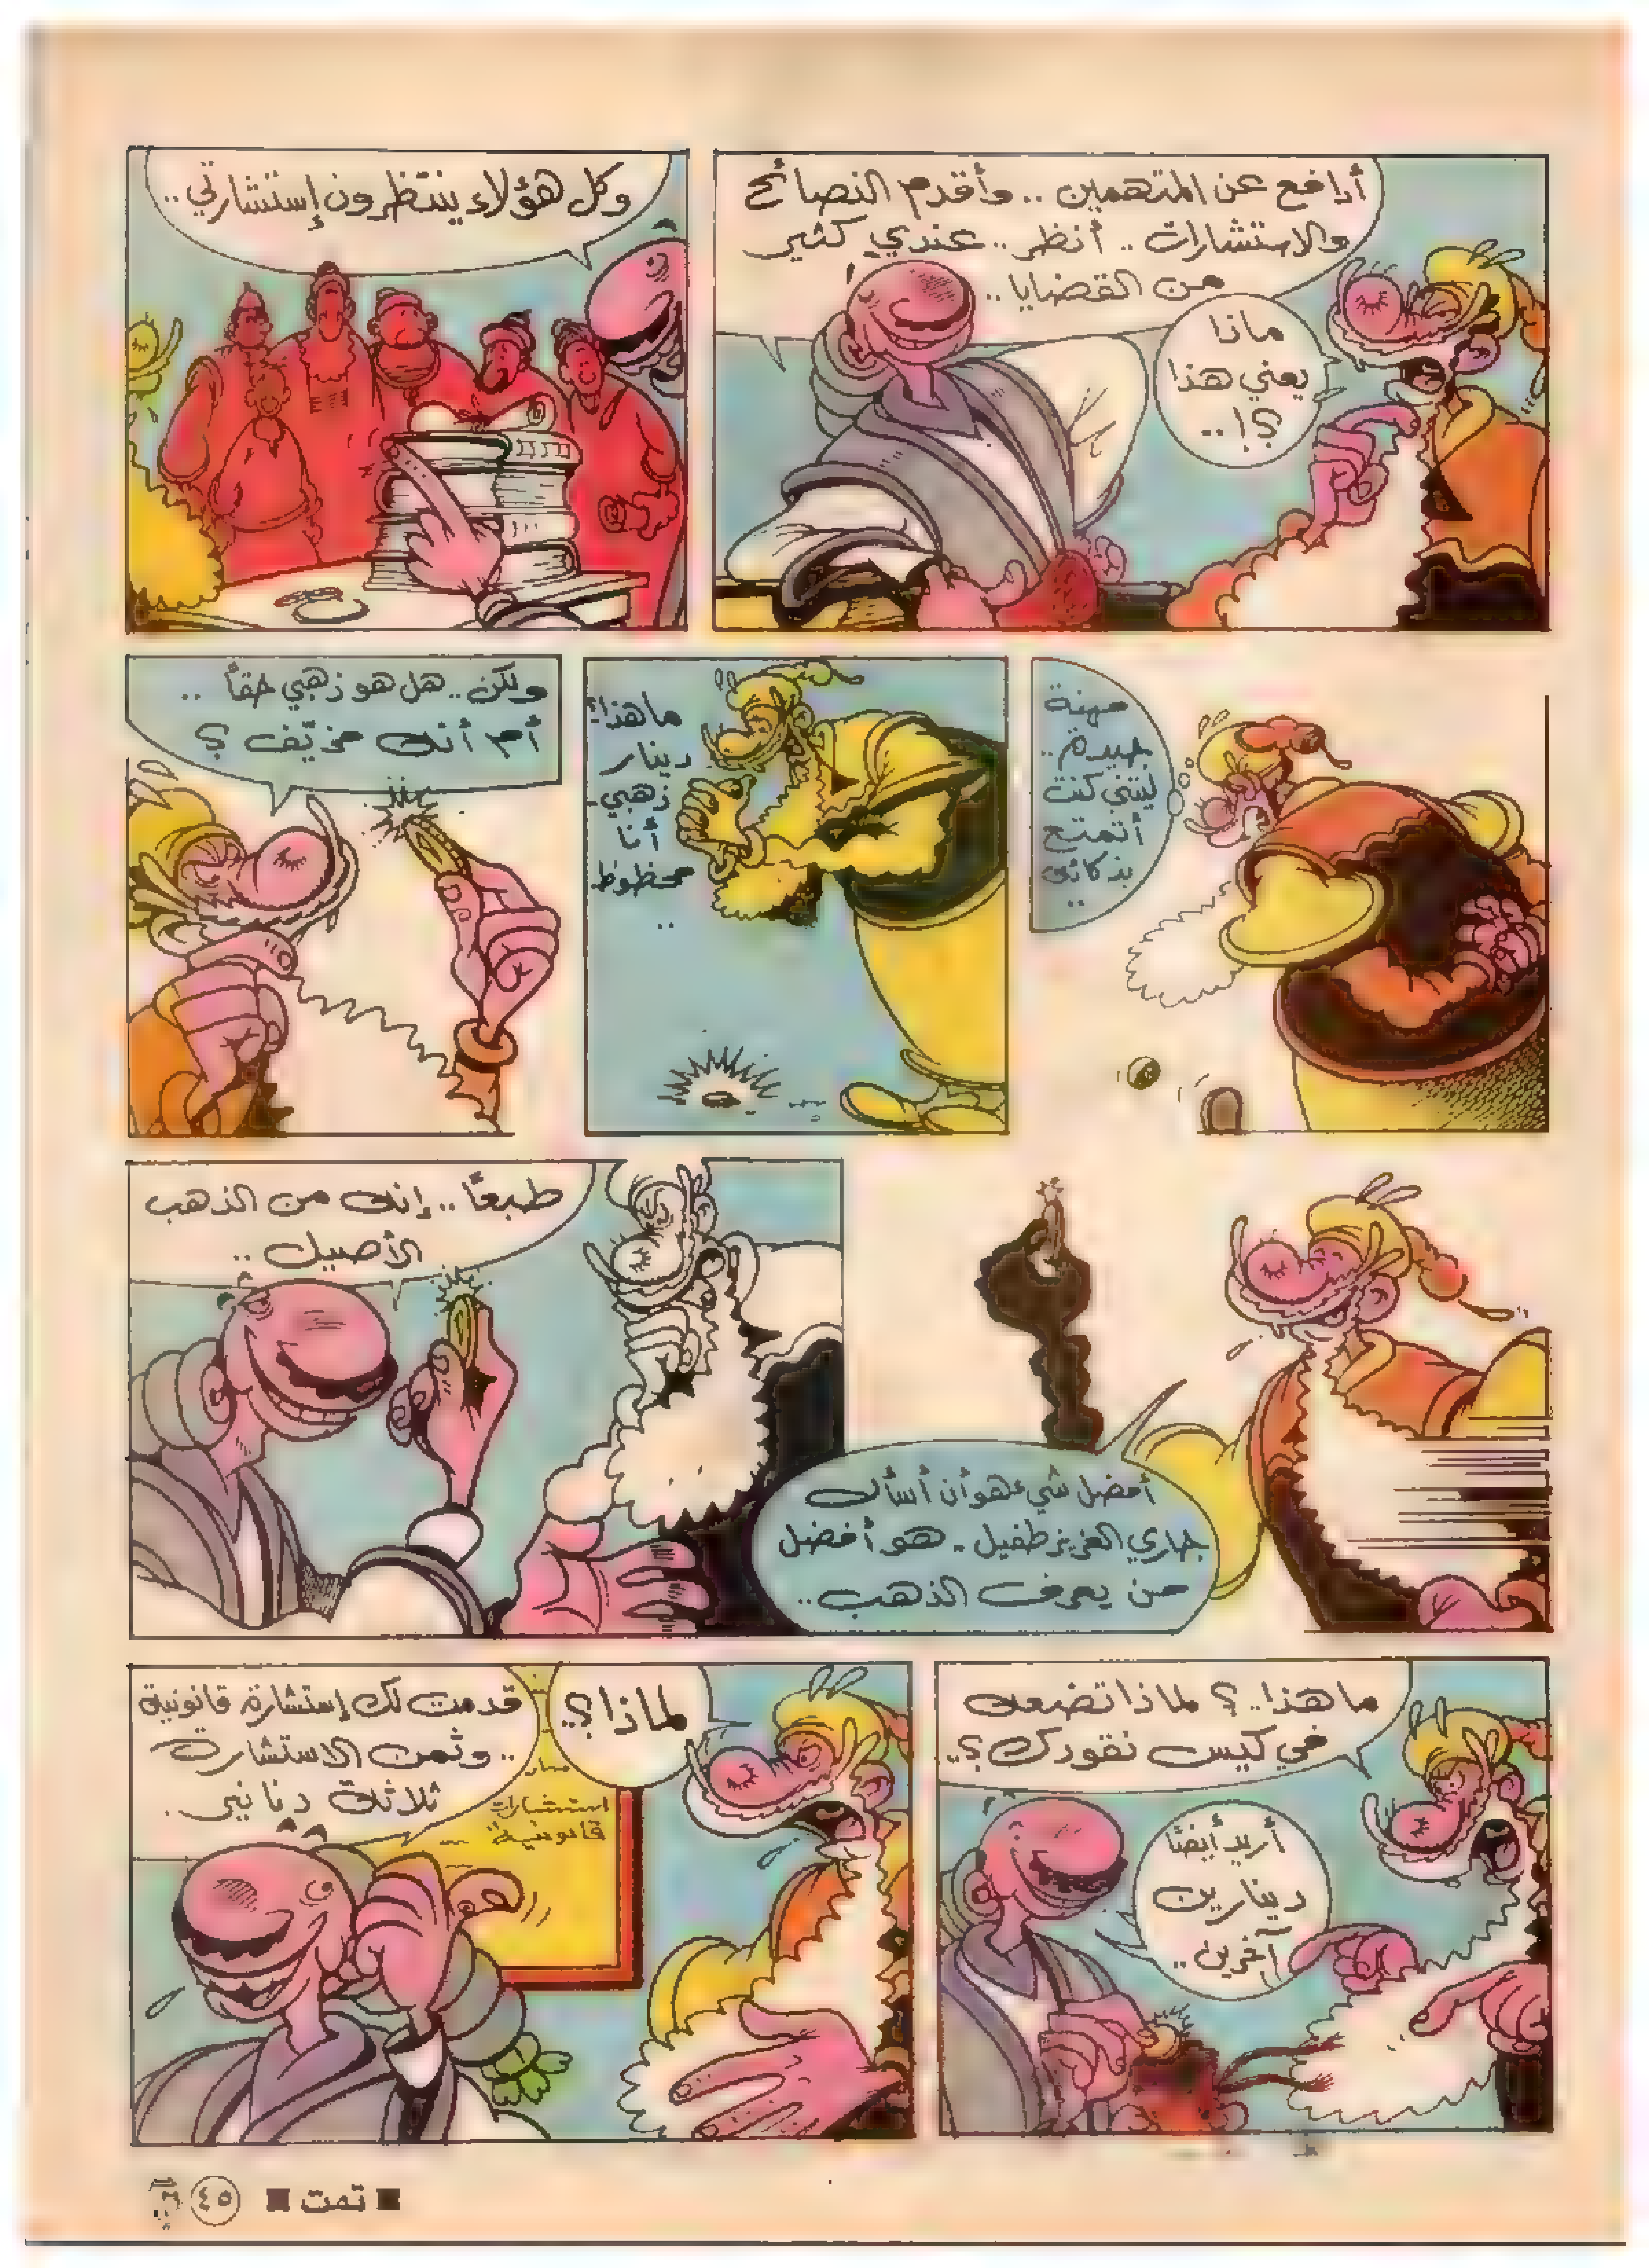 أدافع عن المتهمين .. وأقدم النصائح
والاستشارات .. أنظر .. عندي كثير
من القضايا ..
ماذا
يعني هذا
؟! ..
وكل هؤلاء ينتظرون إستشارتي ..
مهنة
جيدة ..
ليتني كنت
أتمتع
بذكائه
..
ما هذا؟
دينار
ذهبي ـ
أنا
محظوظ
..
ولكن .. هل هو ذهبي حقاً ..
أم أنك مزيّف ؟
أفضل شيء هو أن أسأل
جاري العزيز طفيل ـ هو أفضل
من يعرف الذهب ..
طبعاً .. إنك من الذهب
الأصيل ..
ما هذا .. ؟ لماذا تضعه
في كيس نقودك ؟ ..
أريد أيضاً
دينارين
آخرين ..
لماذا ؟
قدمت لك إستشارة قانونية
.. وثمن الاستشارة
ثلاثة دنانير .
استشارات
قانونية
■ تمت ■ ٤٥